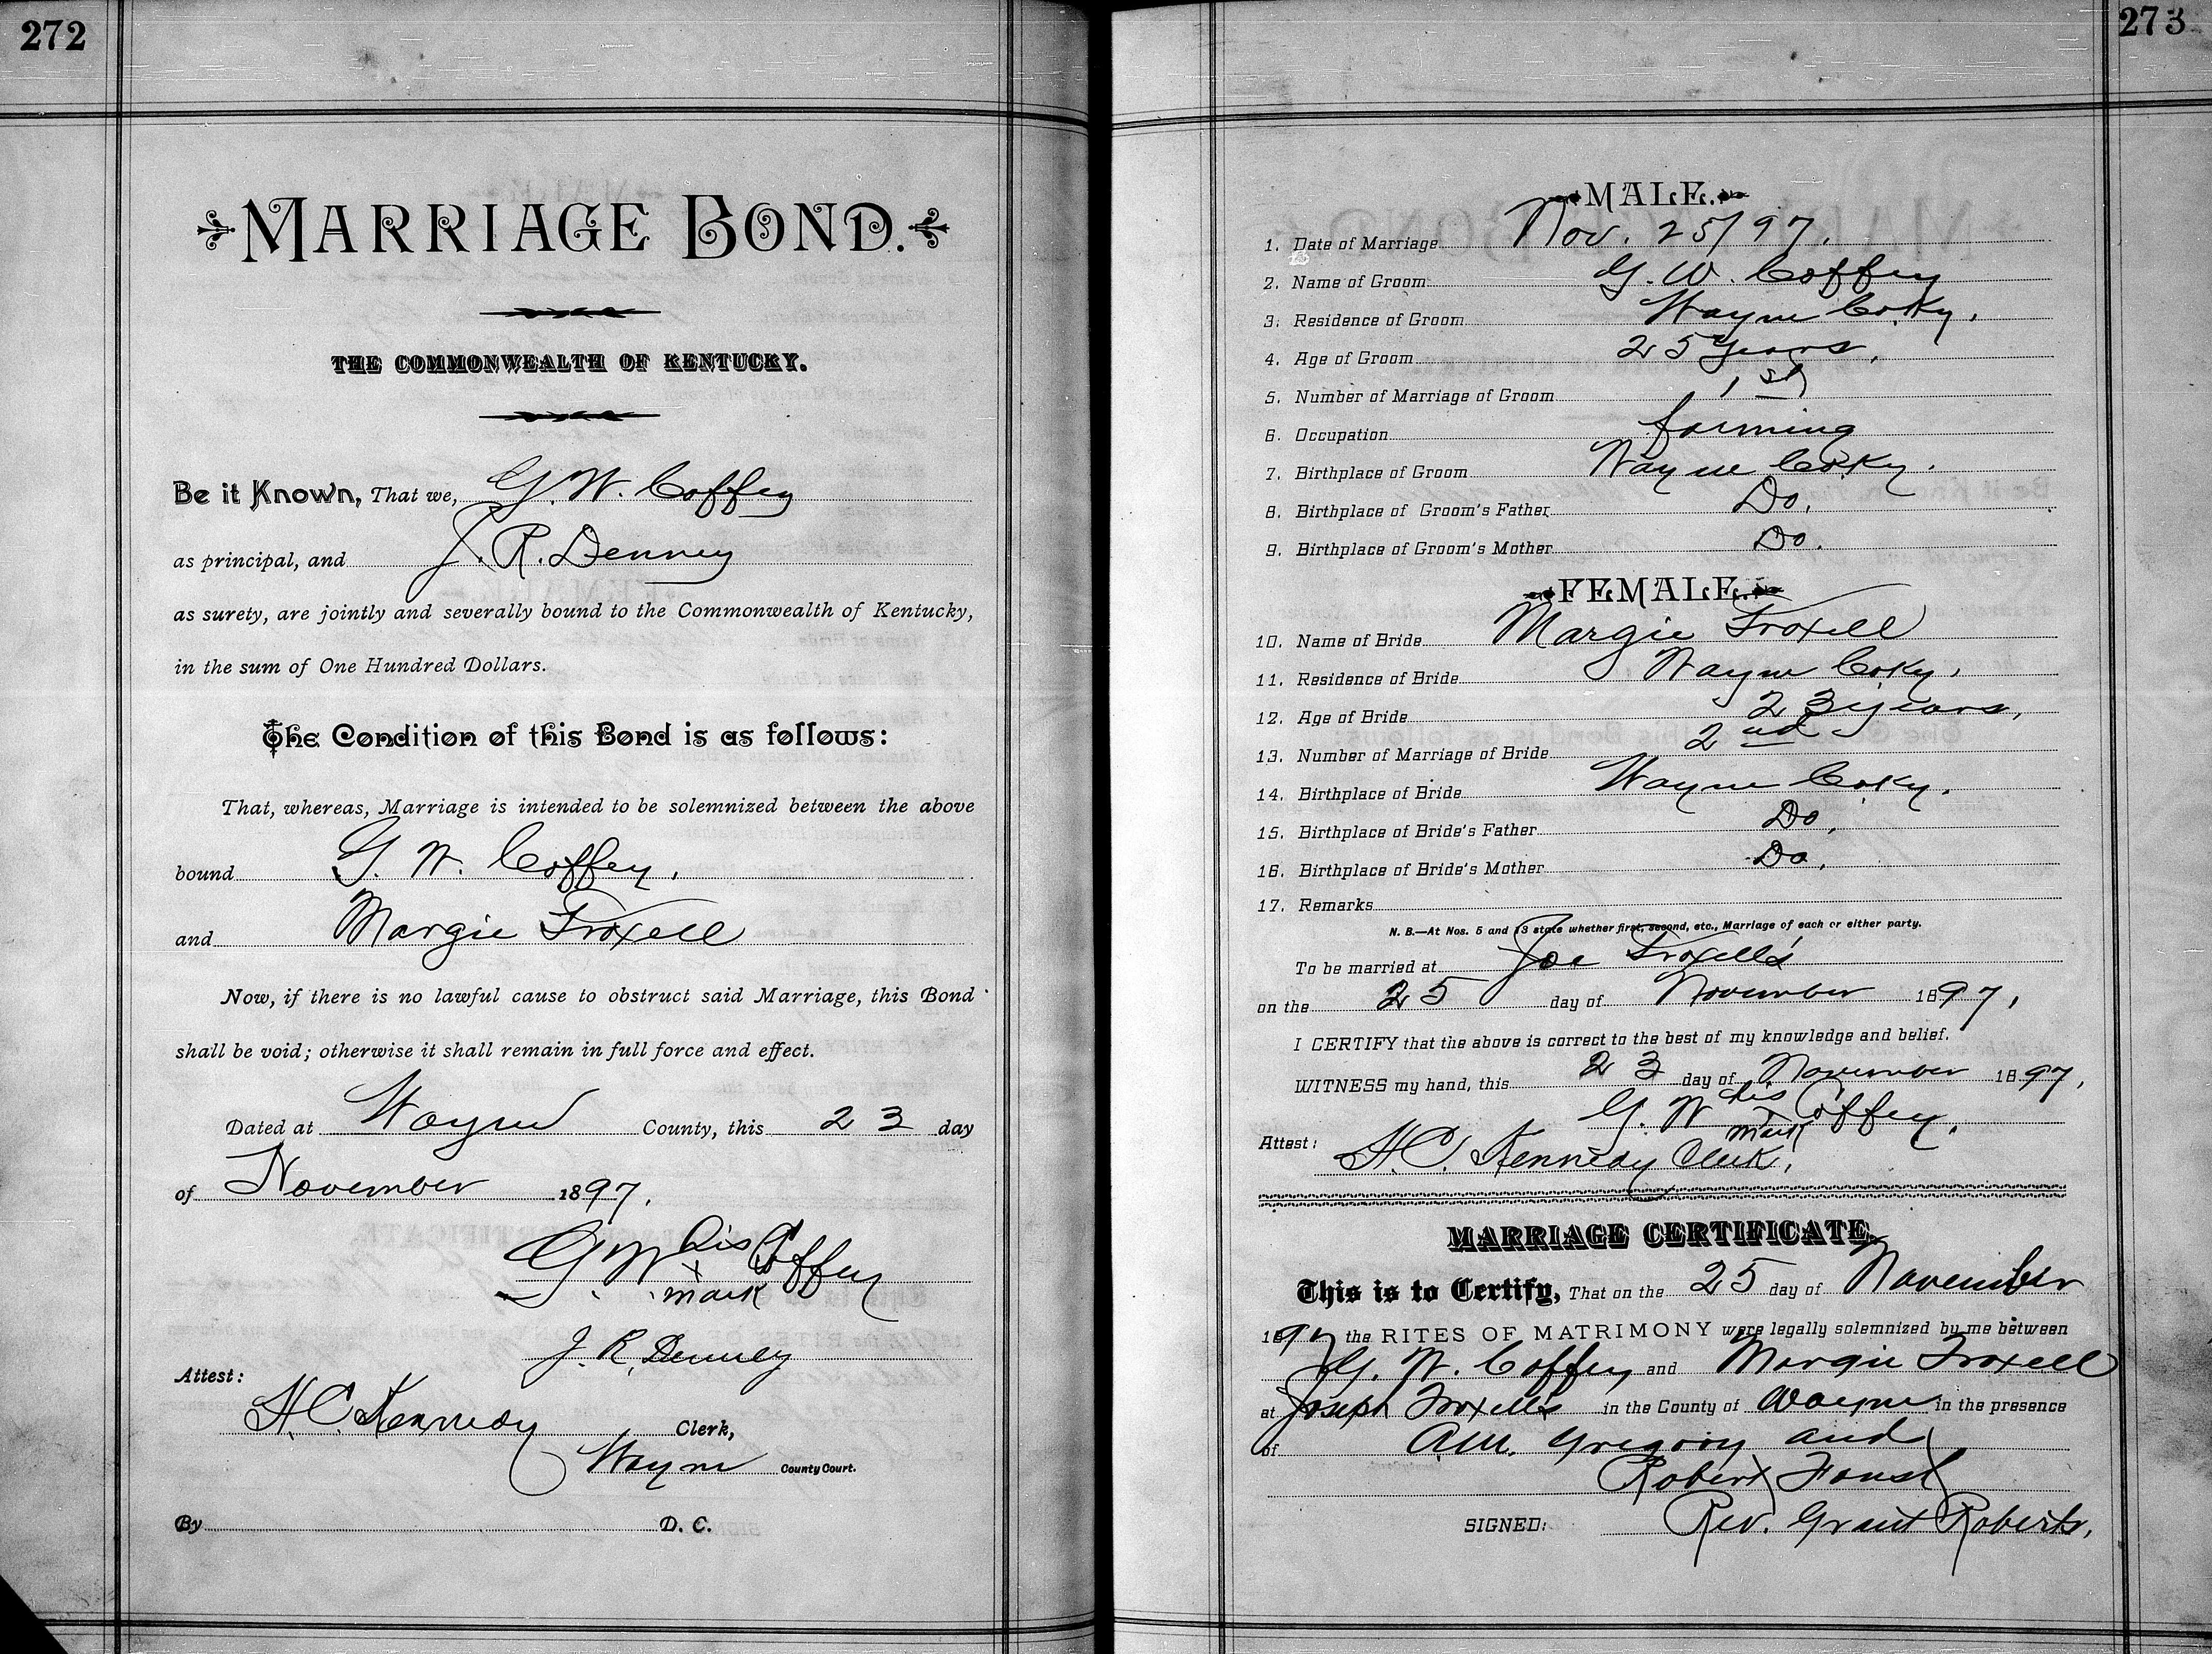 272
MARRIAGE BOND.
THE COMMONWEALTH OF KENTUCKY.
Be it Known, That we, G. W. Coffey
as principal, and J. R. Denney
as surety, are jointly and severally bound to the Commonwealth of Kentucky,
in the sum of One Hundred Dollars.
The Condition of this Bond is as follows:
That, whereas, Marriage is intended to be solemnized between the above
bound G. W. Coffey,
and Margie Troxell
Now, if there is no lawful cause to obstruct said Marriage, this Bond
shall be void; otherwise it shall remain in full force and effect.
Dated at Wayne County, this 23 day
of November 1897.
G. W. his x mark Coffey
J. R. Denney
Attest:
H. C. Kennedy Clerk,
Wayne County Court.
By D. C.
273
MALE.
1. Date of Marriage Nov. 25/97.
2. Name of Groom G. W. Coffey
3. Residence of Groom Wayne Co. Ky.
4. Age of Groom 25 years.
5. Number of Marriage of Groom 1st
6. Occupation farming
7. Birthplace of Groom Wayne Co. Ky.
8. Birthplace of Groom's Father Do.
9. Birthplace of Groom's Mother Do.
FEMALE.
10. Name of Bride Margie Troxell
11. Residence of Bride Wayne Co. Ky.
12. Age of Bride 23 years,
13. Number of Marriage of Bride 2nd
14. Birthplace of Bride Wayne Co. Ky.
15. Birthplace of Bride's Father Do.
16. Birthplace of Bride's Mother Do.
17. Remarks
N. B.—At Nos. 5 and 13 state whether first, second, etc., Marriage of each or either party.
To be married at Joe Troxell's
on the 25 day of November 1897,
I CERTIFY that the above is correct to the best of my knowledge and belief.
WITNESS my hand, this 23 day of November 1897,
G. W. his x mark Coffey,
Attest: H. C. Kennedy Clerk,
MARRIAGE CERTIFICATE.
This is to Certify, That on the 25 day of November
1897 the RITES OF MATRIMONY were legally solemnized by me between
G. W. Coffey and Margie Troxell
at Joseph Troxell's in the County of Wayne in the presence
of Gregory and
Robert Foust
SIGNED: Rev. Grant Roberts,